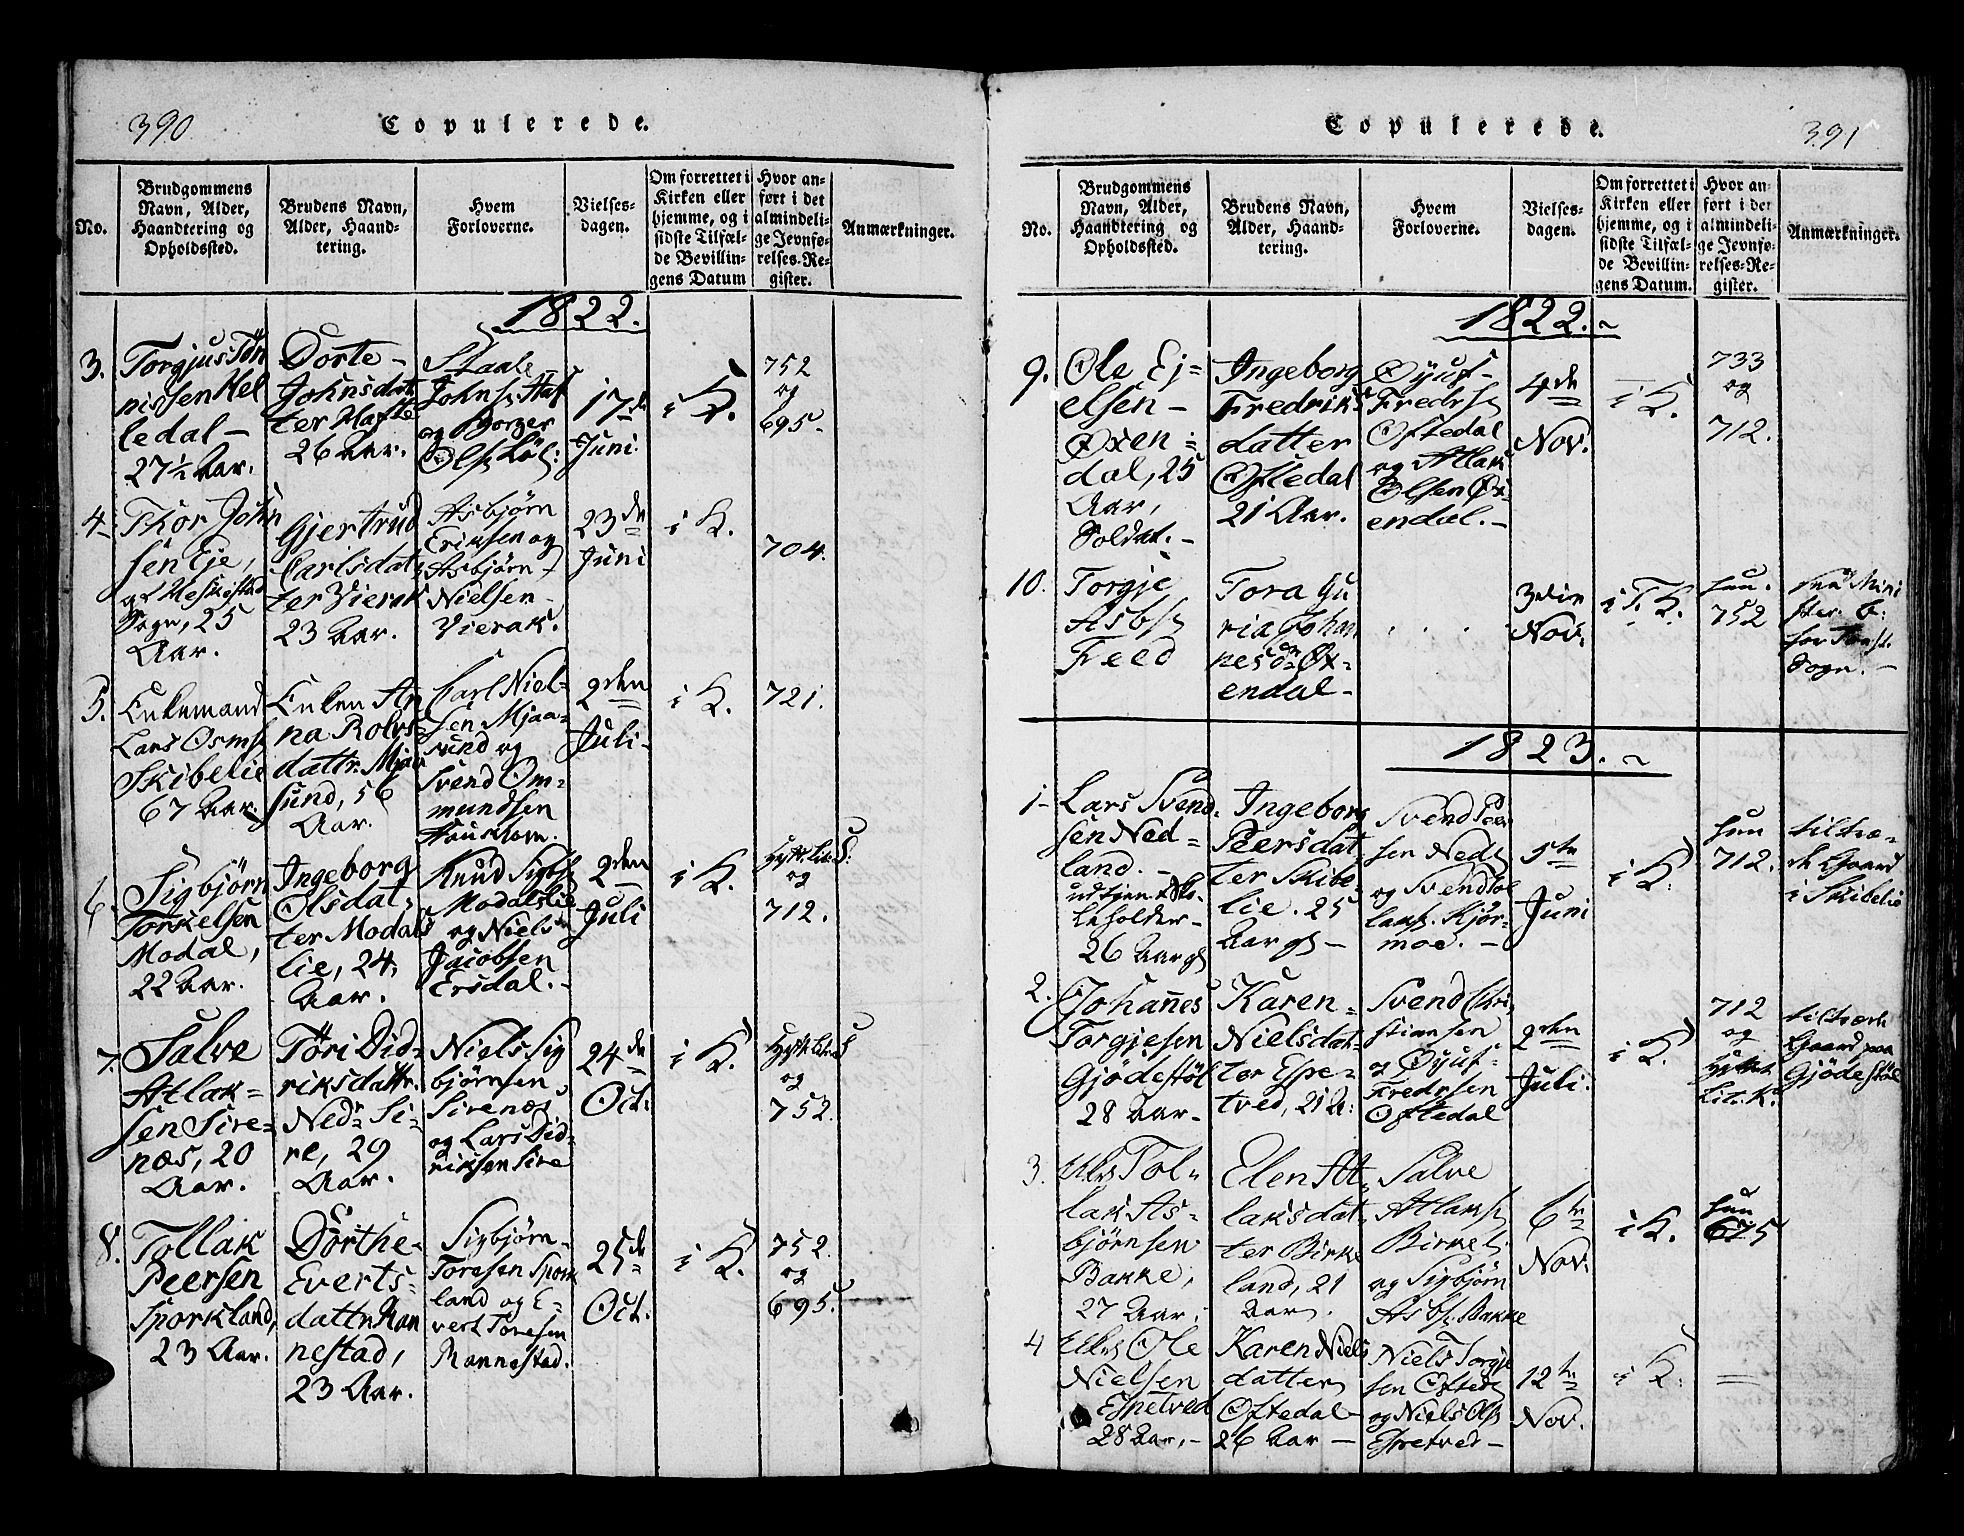 390.
Copulerede.
No.
Brudgommens
Navn, Alder,
Haandtering og
Opholdssted.
Brudens Navn,
Alder, Haand-
tering.
Hvem
Forloverne.
Vielses-
dagen.
Om forrettet i
Kirken eller
hjemme, og i
sidste Tilfæl-
de Bevillin-
gens Datum
Hvor an-
ført i det
almindeli-
ge Jevnfø-
relses-Re-
gister.
Anmærkninger.
1822.
3.
Torgjus Tøn
nissen Hel
ledal -
27½ Aar.
Dorte -
Johnsdat
ter Hafte
26 Aar.
Staale
Johns. Haf
og Borger
Ols. Løl:
17de
Juni.
i K.
752
og
695.
4.
Thor John
sen Eje,
af Heskestad
Sogn, 25
Aar.
Gjertrud
Carlsdat
ter Vierak
23 Aar.
Asbjørn
Eriksen og
Asbjørn
Nielsen
Vierak.
23de
Juni
i K.
704.
5.
Enkemand
Lars Osms.
Skibelie
67 Aar.
Enken An
na Rolvs
dattr. Mjaa
sund, 56
Aar.
Carl Niel-
sen Mjaa-
sund og
Svend Om-
mundsen
2den
Juli
i K.
721.
6.
Sigbjørn
Torkelsen
Modal,
22 Aar.
Ingeborg
Olsdat,
ter Modals
lie, 24
Aar.
Knud Sigbs.
Modalslie
og Niels
Jacobsen
Ersdal.
2den
Juli
i K.
og
712.
7.
Salve
Atlak-
sen Sire-
næs, 20
Aar.
Tøri Did-
riksdattr.
Nedr. Si-
re, 29
Aar.
Niels Sig
bjørnsen
Sirenæs
og Lars Did-
riksen Sire
24de
Oct.
i K.
og
752.
8.
Tollak
Peersen
Sporkland,
23 Aar.
Dorthe
Everts-
dattr. Ran
nestad,
23 Aar.
Sigbjørn
Toresen Spork
land og E-
vert Toresen
Rannestad.
25de
Oct.
i K.
752.
og
695.
391
Copulerede.
No.
Brudgommens
Navn, Alder,
Haandtering og
Opholdssted.
Brudens Navn,
Alder, Haand-
tering.
Hvem
Forloverne.
Vielses-
dagen.
Om forrettet i
Kirken eller
hjemme, og i
sidste Tilfæl-
de Bevillin-
gens Datum.
Hvor an-
ført i det
almindeli-
ge Jevnfø-
relses-Re-
gister.
Anmærkninger.
1822.
9.
Ole Ej-
elsen -
Øxen-
dal, 25
Aar,
Soldat. -
Ingeborg
Fredriks
datter
Oftedal
21 Aar.
Øyuf
Fredrs.
Oftedal
og Atlak
Olsen Øx-
endal. -
4de
Nov.
i K.
733
og
712.
10.
Torgje
Asbs.
Feed
Tora Gu
ria Johan
nesdr. Øx-
endal -
3die
Nov.
i T. K.
hun.
752
Sogn. -
1823.
1.
Lars Svend-
sen Ned-
land. -
26 Aar gl
Ingeborg
Peersdat
ter Skibe-
lie. 25
Aar gl -
Svend Peer
sen Nedl
og Svend Tol
laks. Kjør-
moe. -
5te
Juni
i K.
hun
712.
tiltræ-
der Gaard
i Skibelie
2.
Johannes
Torgjesen
Gjødestøl
28 Aar -
Karen -
Nielsdat-
ter Espe-
tved, 21 A:
Svend Chri-
stiansen
og Øyuf
Fredrsen
Oftedal
2den
Juli.
i K.
712
og
Lit. K.
tiltræder
Gaard paa
Gjødestøl
3.
Tol-
lak As-
bjørnsen
Bakke,
27 Aar.
Elen At
laksdat-
ter Birke
land, 21
Aar.
Salve
Atlaks.
Birkel.
og Sigbjørn
Asbs. Bakke
6te
Nov.
i K.
hun
675
4
Ole
Nielsen
Espetved
28 Aar. -
Karen Niels
datter
Oftedal
26 Aar -
Niels Torgje
sen Ofted.
og Niels Ols.
Espetved -
12te
Nov.
i K.